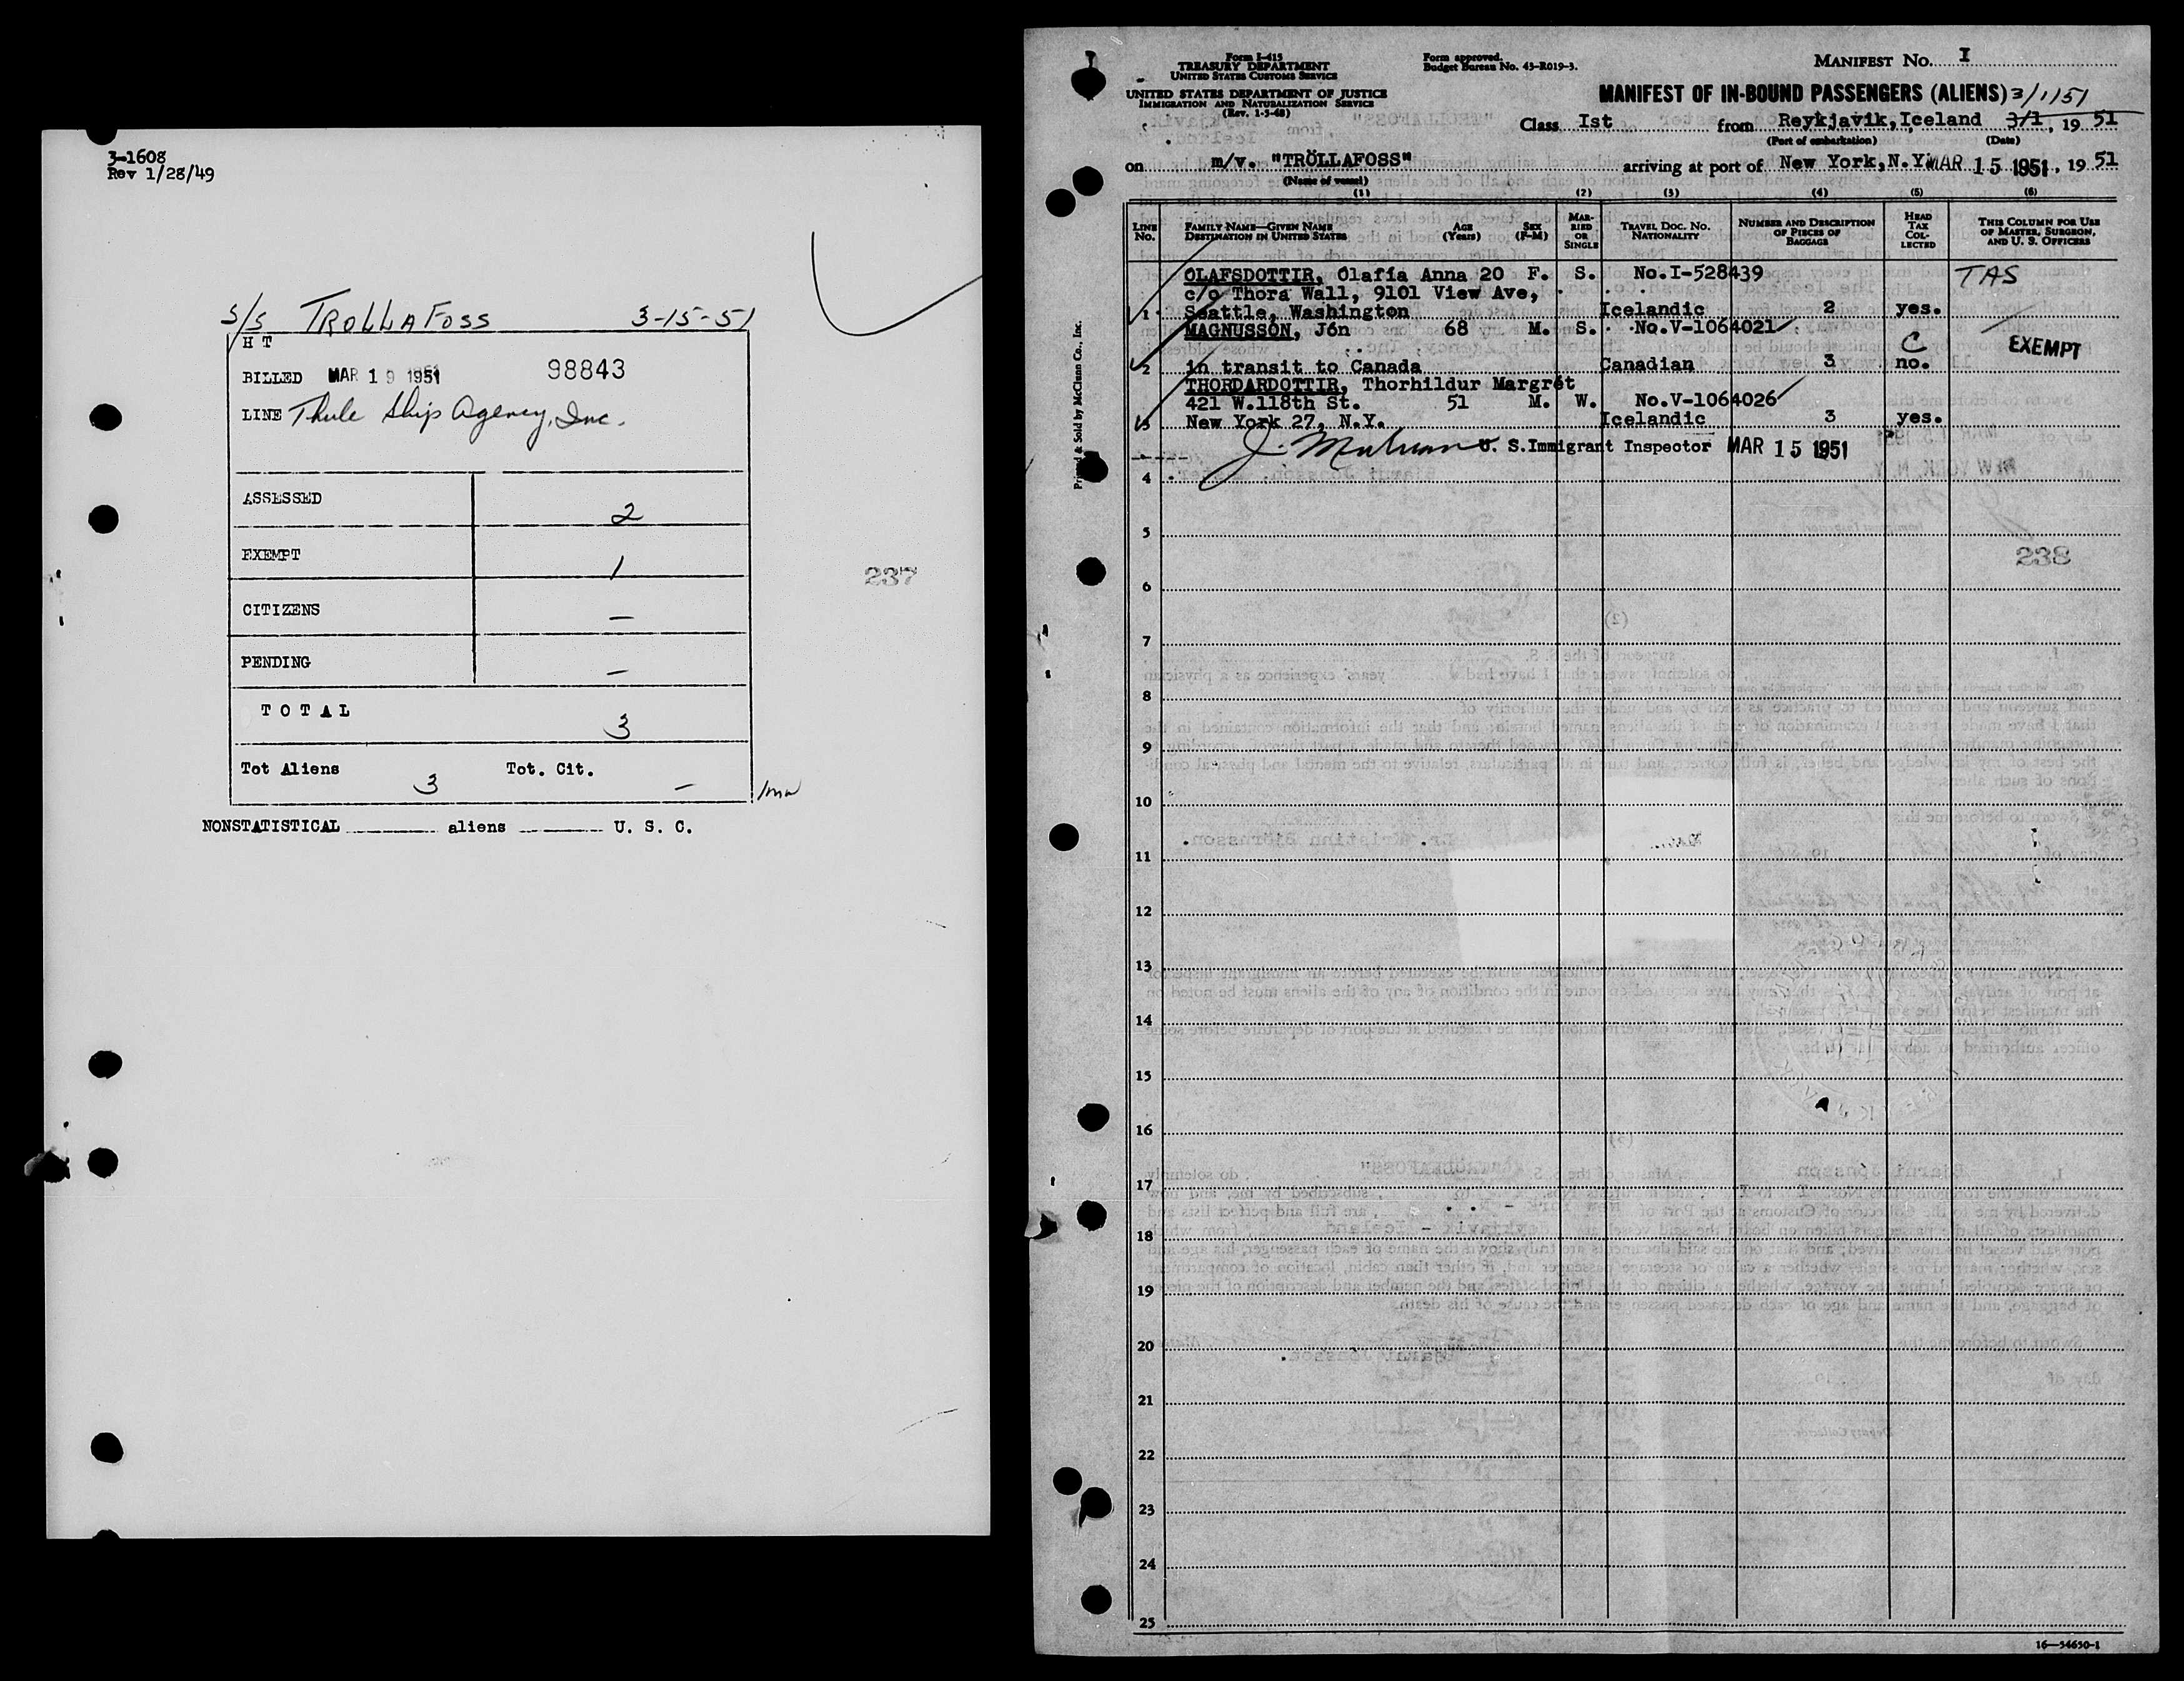 3-1608
Rev 1/28/49
S/S TROLLAFOSS 3-15-51
H T
BILLED MAR 19 1951 98843
LINE Thule Ship Agency, Inc.
ASSESSED 2
EXEMPT 1
CITIZENS —
PENDING —
T O T A L 3
Tot Aliens 3 Tot. Cit. —
NONSTATISTICAL aliens U. S. C.
237
Form I-415
TREASURY DEPARTMENT
UNITED STATES CUSTOMS SERVICE
UNITED STATES DEPARTMENT OF JUSTICE
IMMIGRATION AND NATURALIZATION SERVICE
(Rev. 1-5-48)
Form approved.
Budget Bureau No. 43-R019-3.
MANIFEST No. I
MANIFEST OF IN-BOUND PASSENGERS (ALIENS) 3/1/51
Class Ist from Reykjavik, Iceland 3/1, 19 51
(Port of embarkation) (Date)
on m/v. "TRÖLLAFOSS" arriving at port of New York, N.Y. MAR 15 1951, 19 51
(Name of vessel)
(1) (2) (3) (4) (5) (6)
LINE No. FAMILY NAME—GIVEN NAME DESTINATION IN UNITED STATES AGE (Years) SEX (F-M) MARRIED OR SINGLE TRAVEL DOC. NO. NATIONALITY NUMBER AND DESCRIPTION OF PIECES OF BAGGAGE HEAD TAX COLLECTED THIS COLUMN FOR USE OF MASTER, SURGEON, AND U. S. OFFICERS
OLAFSDOTTIR, Olafía Anna 20 F. S. No.I-528439 TAS
c/o Thora Wall, 9101 View Ave,
1 Seattle, Washington Icelandic 2 yes.
MAGNUSSON, Jón 68 M. S. No.V-1064021
C EXEMPT
2 in transit to Canada Canadian 3 no.
THORDARDOTTIR, Thorhildur Margrét
421 W.118th St. 51 M. W. No.V-1064026
3 New York 27, N.Y. Icelandic 3 yes.
U. S. Immigrant Inspector MAR 15 1951
4
5
238
6
7
8
9
10
11
12
13
14
15
16
17
18
19
20
21
22
23
24
25
16—54650-1
Printed & Sold by McClunn Co., Inc.